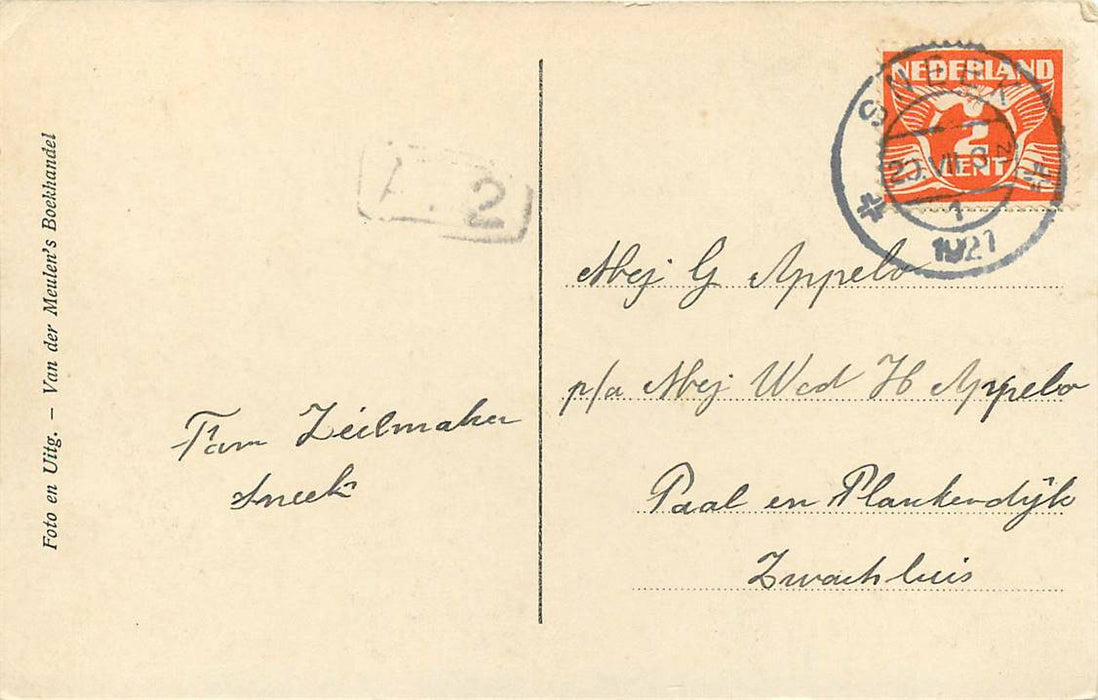 Foto en Uitg. – Van der Meulen's Boekhandel
Fam Zeilmaker
Sneek
2
NEDERLAND
2
CENT
SNEEK
1
1927
Mej G Appelo
p/a Mej Wed H Appelo
Paal en Plankendijk
Zwachluis